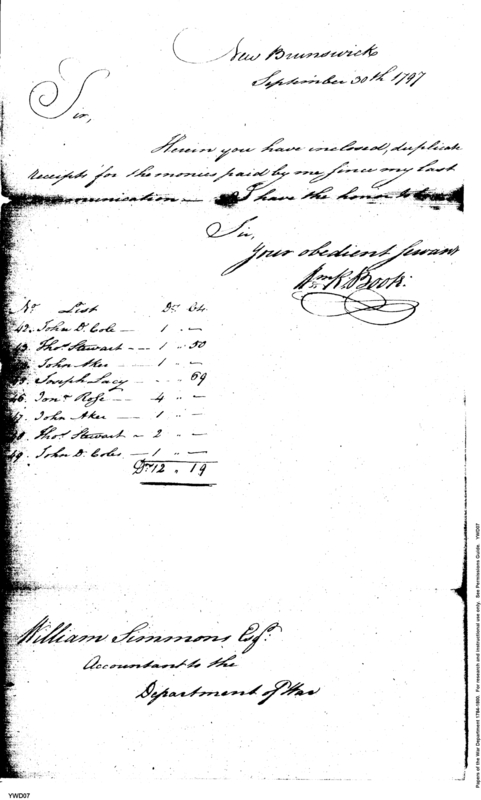 New Brunswick
September 30th 1797
Sir,
Herein you have inclosed, duplicate
receipts for the monies paid by me since my last
communication — I have the honor to
Sir,
Your obedient Servant
Wm R. Book.
No List Drs Cts
42. John D. Cole — 1 " —
43 Thos Stewart — 1 " 50
John Aker — 1 " —
45. Joseph Lacy " 69
46. Jont Rose — 4 " —
47. John Aker — 1 " —
48. Thos Stewart — 2 " —
49. John D. Coles — 1 " —
Drs 12 " 19
William Simmons Esqr.
Accountant to the
Department of War
YWD07
Papers of the War Department 1784-1800. For research and instructional use only. See Permissions Guide. YWD07